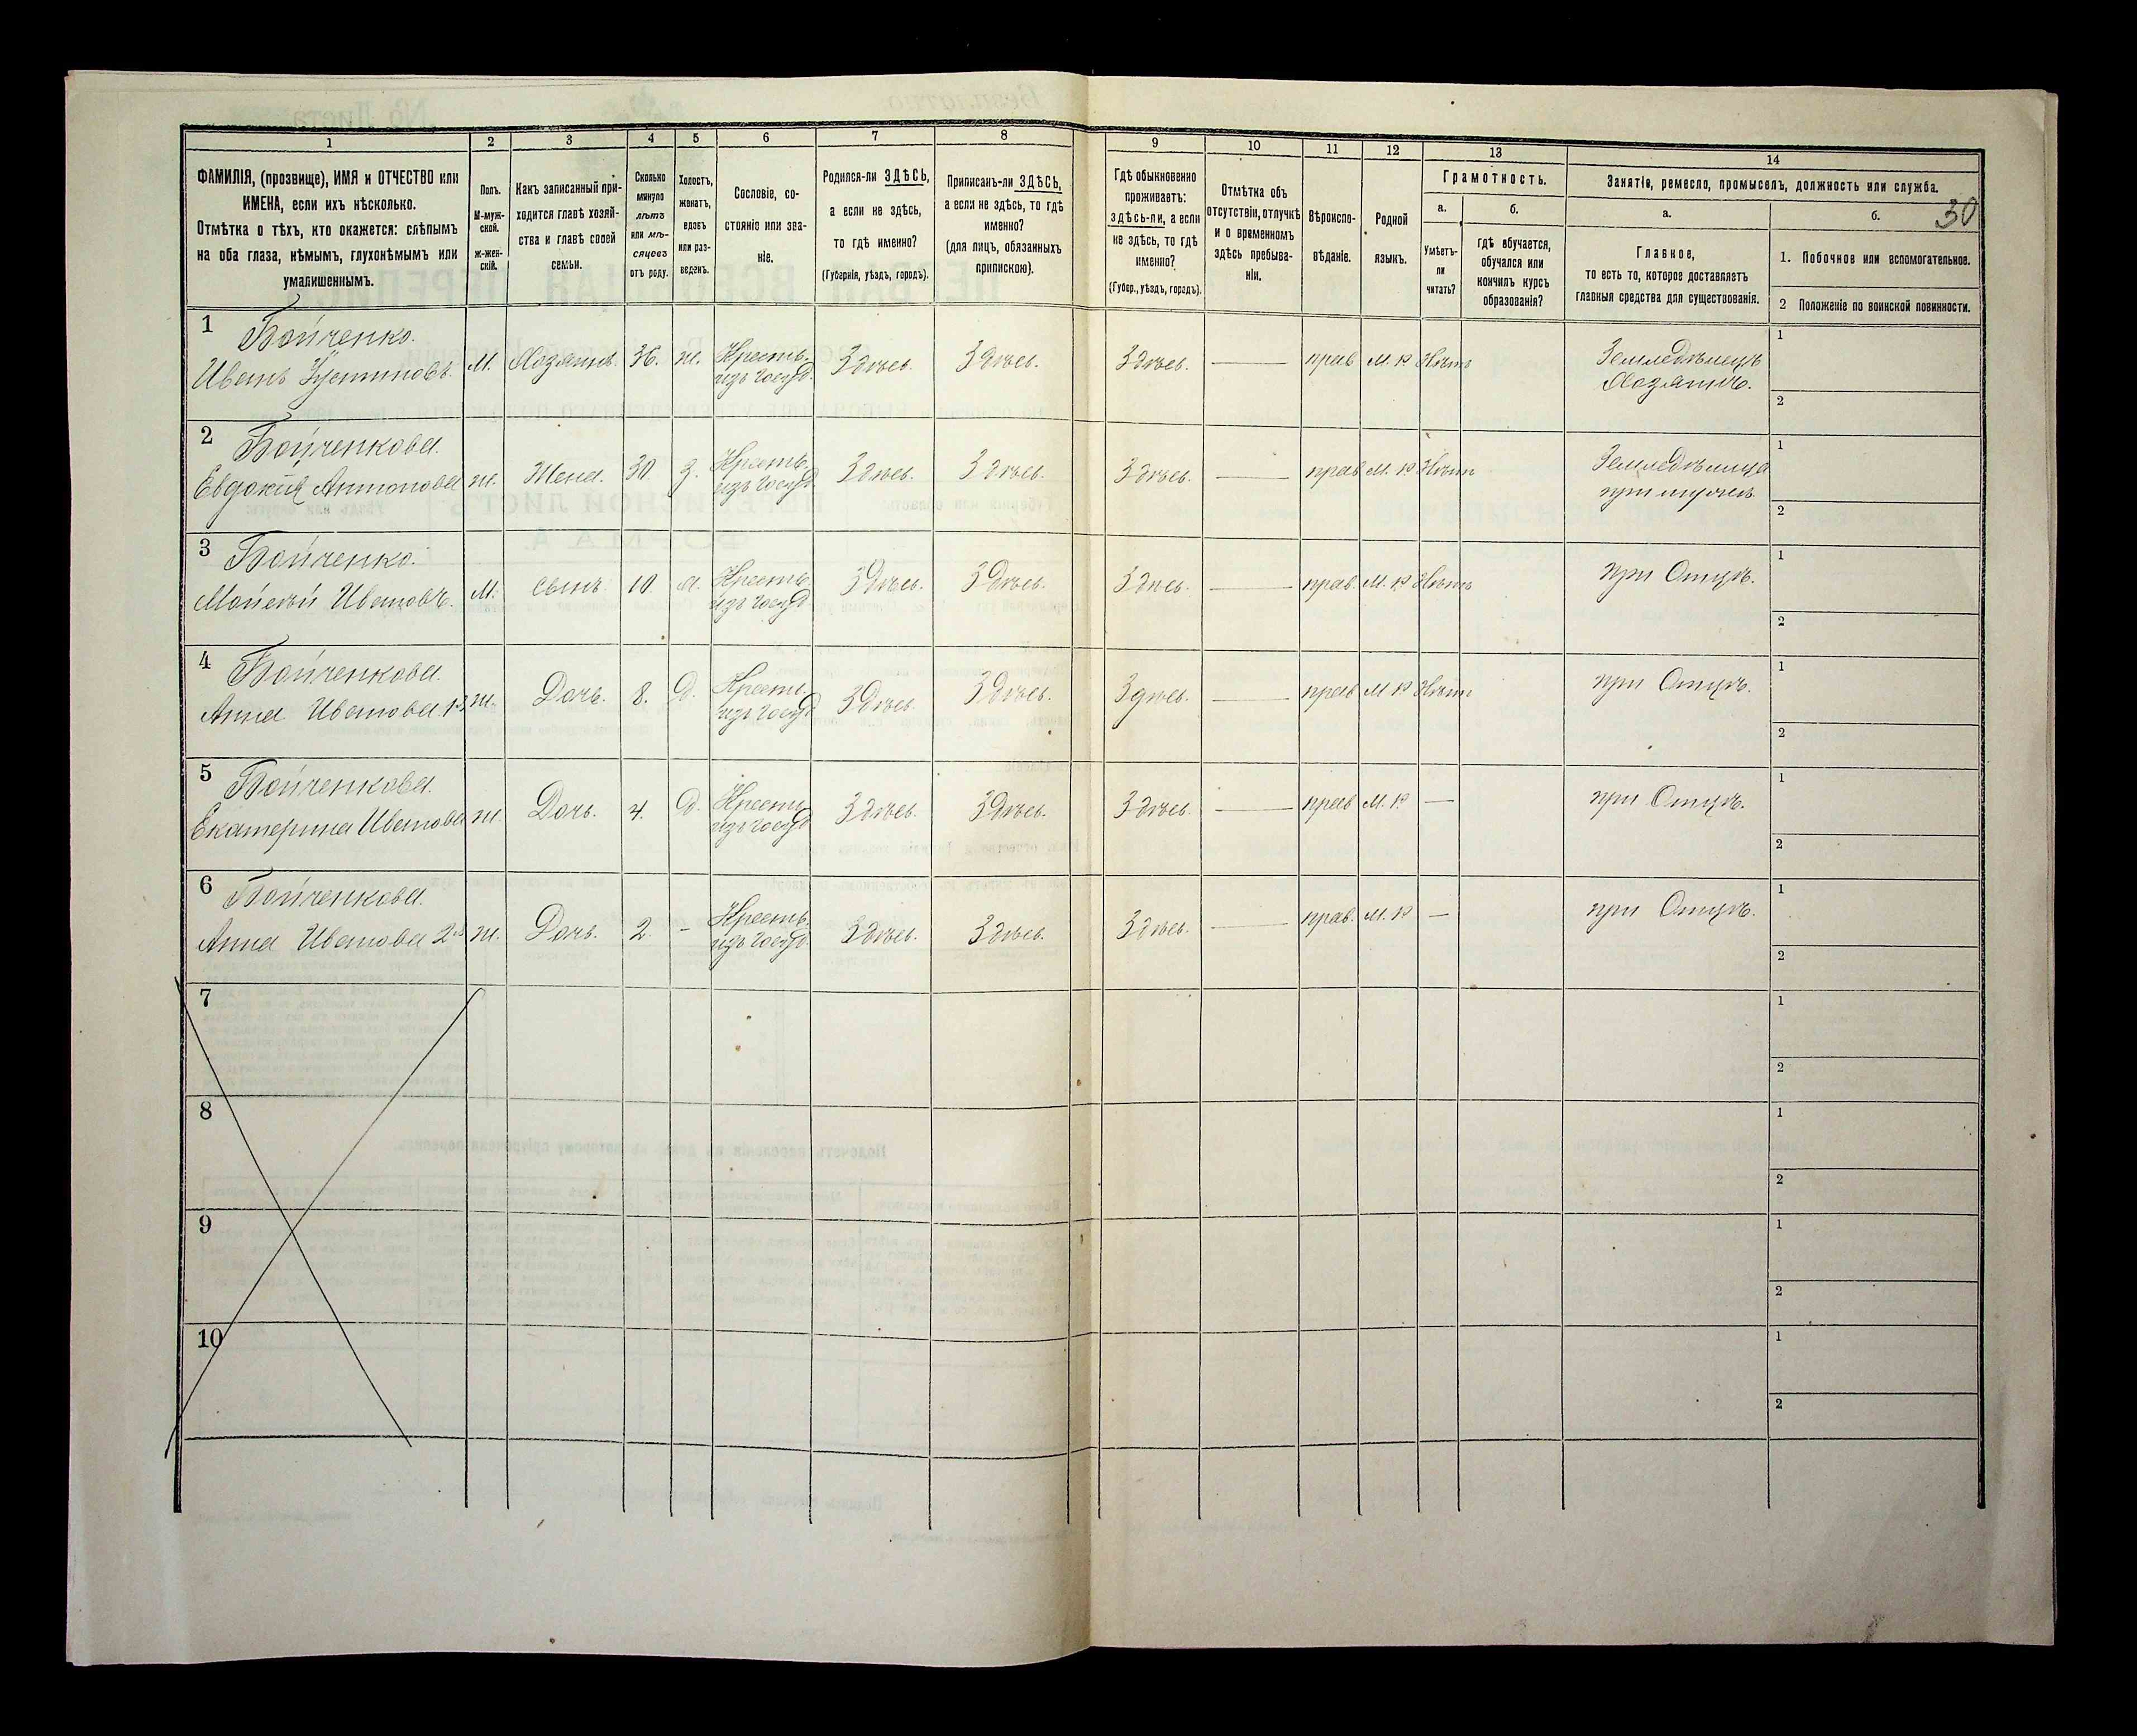 30
1 2 3 4 5 6 7 8 9 10 11 12 13 14
ФАМИЛІЯ, (прозвище), ИМЯ и ОТЧЕСТВО или
ИМЕНА, если ихъ нѣсколько.
Отмѣтка о тѣхъ, кто окажется: слѣпымъ
на оба глаза, нѣмымъ, глухонѣмымъ или
умалишеннымъ.
Полъ.
М-муж-
ской.
Ж-жен-
скій.
Какъ записанный при-
ходится главѣ хозяй-
ства и главѣ своей
семьи.
Сколько
минуло
лѣтъ
или мѣ-
сяцевъ
отъ роду.
Холостъ,
женатъ,
вдовъ
или раз-
веденъ.
Сословіе, со-
стояніе или зва-
ніе.
Родился-ли ЗДѢСЬ,
а если не здѣсь,
то гдѣ именно?
(Губернія, уѣздъ, городъ).
Приписанъ-ли ЗДѢСЬ,
а если не здѣсь, то гдѣ
именно?
(для лицъ, обязанныхъ
припискою).
Гдѣ обыкновенно
проживаетъ:
здѣсь-ли, а если
не здѣсь, то гдѣ
именно?
(Губер., уѣздъ, городъ).
Отмѣтка объ
отсутствіи, отлучкѣ
и о временномъ
здѣсь пребыва-
ніи.
Вѣроиспо-
вѣданіе.
Родной
языкъ.
Грамотность.
а.
Умѣетъ-
ли
читать?
б.
гдѣ обучается,
обучался или
кончилъ курсъ
образованія?
Занятіе, ремесло, промыселъ, должность или служба.
а.
Главное,
то есть то, которое доставляетъ
главныя средства для существованія.
б.
1. Побочное или вспомогательное.
2 Положеніе по воинской повинности.
1 Бойченко.
Иванъ Устиновъ. М. Хозяинъ. 36. ж. Кресть. Здѣсь. Здѣсь. Здѣсь. — прав М. Р Нѣтъ Земледѣлецъ 1
изъ Госуд. Хозяинъ. 2
2 Бойченкова.
Евдокія Антонова ж. Жена. 30 з. Кресть. Здѣсь. Здѣсь. Здѣсь. — прав М. Р Нѣтъ Земледѣлица 1
изъ Госуд при мужѣ. 2
3 Бойченко.
Мойсей Ивановъ. М. сынъ. 10. х. Кресть. Здѣсь. Здѣсь. Здѣсь. — прав. М. Р Нѣтъ при Отцѣ. 1
изъ Госуд 2
4 Бойченкова.
Анна Иванова 1я ж. Дочь. 8. д. Кресть. Здѣсь. Здѣсь. Здѣсь. — прав М Р Нѣтъ при Отцѣ. 1
изъ Госуд 2
5 Бойченкова.
Екатерина Иванова ж. Дочь. 4. д. Кресть Здѣсь. Здѣсь. Здѣсь. — прав М. Р — при Отцѣ. 1
изъ Госуд 2
6 Бойченкова.
Анна Иванова 2я ж. Дочь. 2. - Кресть Здѣсь. Здѣсь. Здѣсь. — прав. М. Р — при Отцѣ. 1
изъ Госуд. 2
7 1
2
8 1
2
9 1
2
10 1
2